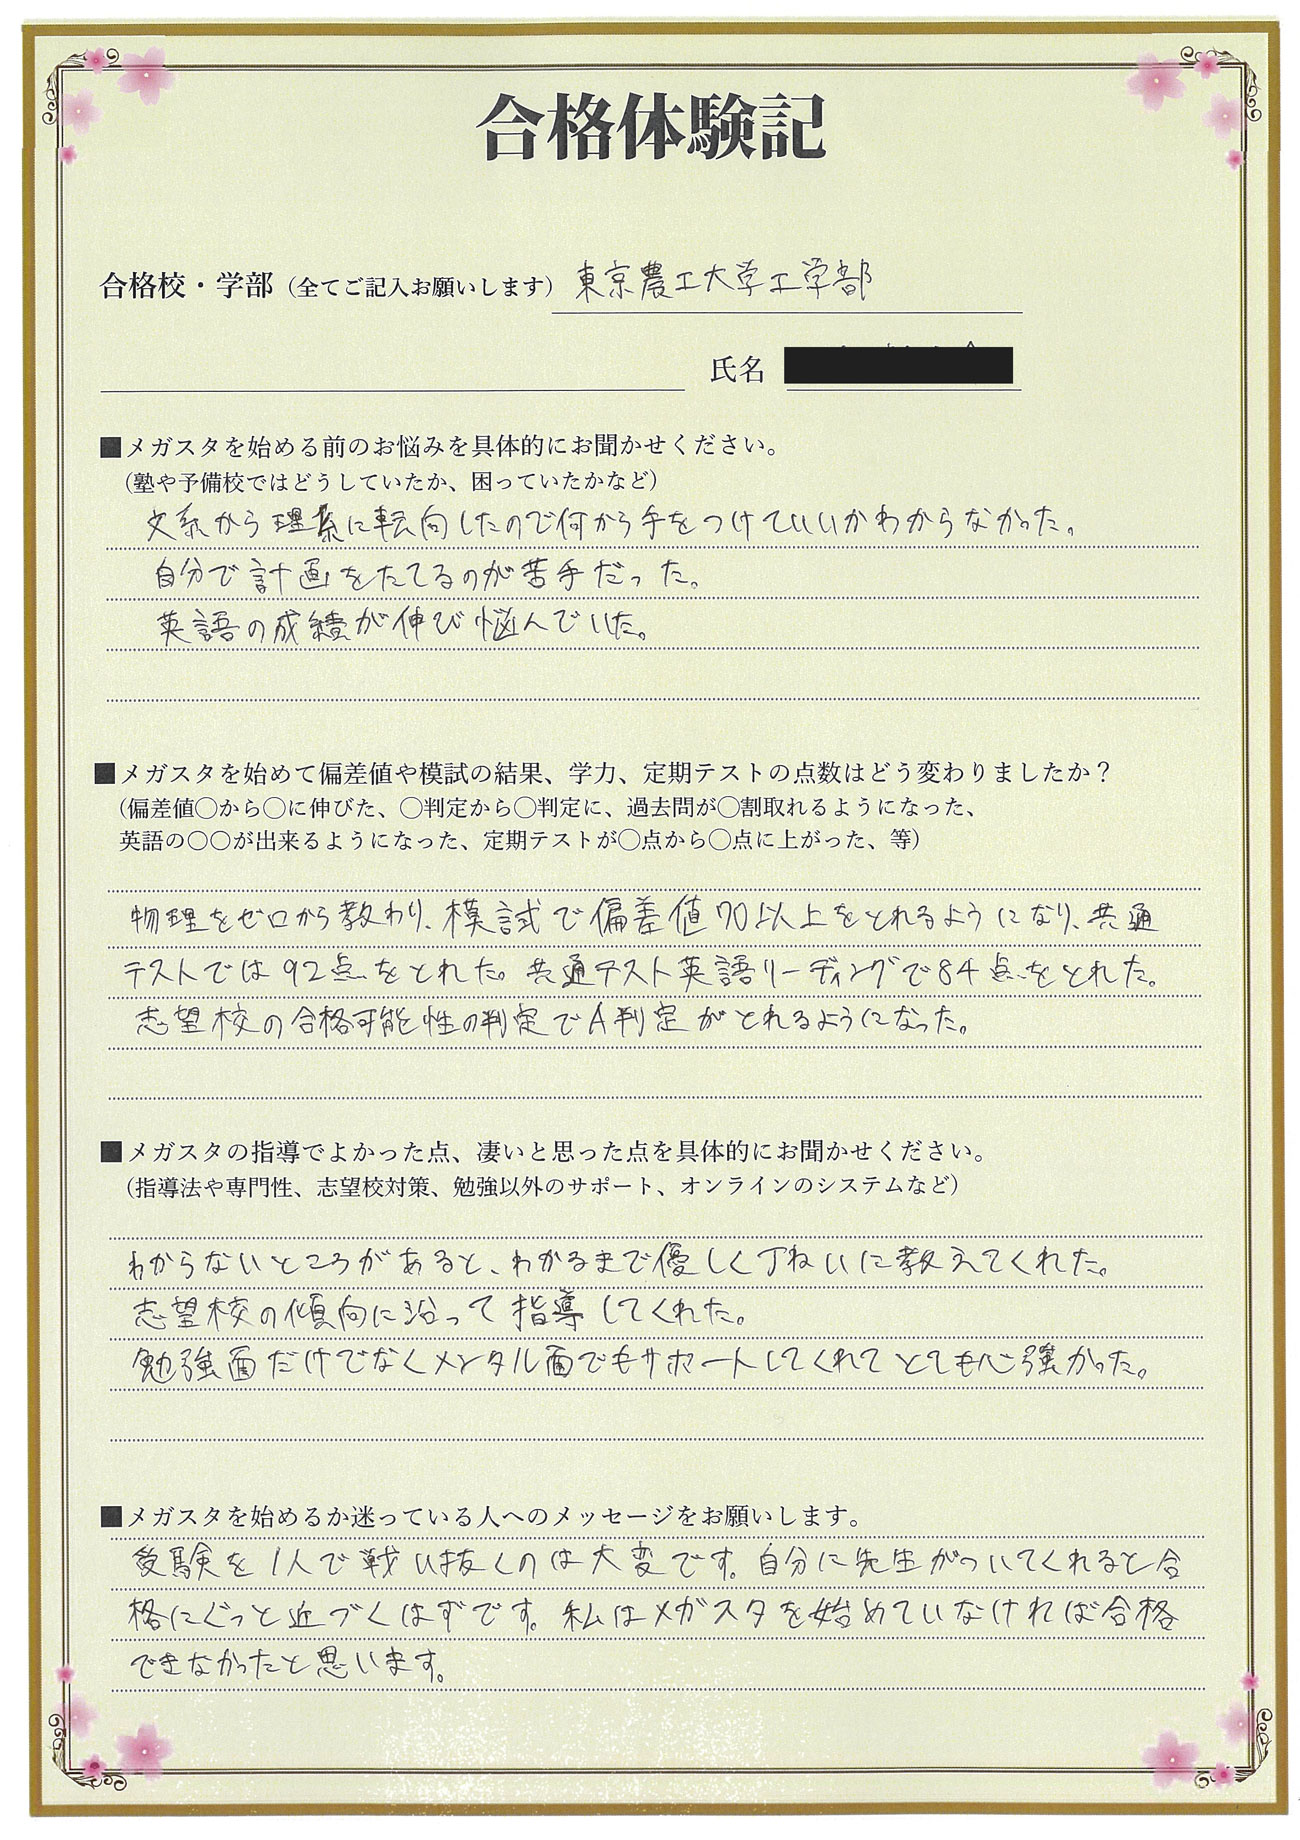 合格体験記
合格校・学部（全てご記入お願いします） 東京農工大学工学部
氏名
■メガスタを始める前のお悩みを具体的にお聞かせください。
（塾や予備校ではどうしていたか、困っていたかなど）
文系から理系に転向したので何から手をつけていいかわからなかった。
自分で計画をたてるのが苦手だった。
英語の成績が伸び悩んでいた。
■メガスタを始めて偏差値や模試の結果、学力、定期テストの点数はどう変わりましたか？
（偏差値〇から〇に伸びた、〇判定から〇判定に、過去問が〇割取れるようになった、
英語の〇〇が出来るようになった、定期テストが〇点から〇点に上がった、等）
物理をゼロから教わり、模試で偏差値70以上をとれるようになり、共通
テストでは92点をとれた。共通テスト英語リーディングで84点をとれた。
志望校の合格可能性の判定でA判定がとれるようになった。
■メガスタの指導でよかった点、凄いと思った点を具体的にお聞かせください。
（指導法や専門性、志望校対策、勉強以外のサポート、オンラインのシステムなど）
わからないところがあると、わかるまで優しく丁ねいに教えてくれた。
志望校の傾向に沿って指導してくれた。
勉強面だけでなくメンタル面でもサポートしてくれてとても心強かった。
■メガスタを始めるか迷っている人へのメッセージをお願いします。
受験を1人で戦い抜くのは大変です。自分に先生がついてくれると合
格にぐっと近づくはずです。私はメガスタを始めていなければ合格
できなかったと思います。